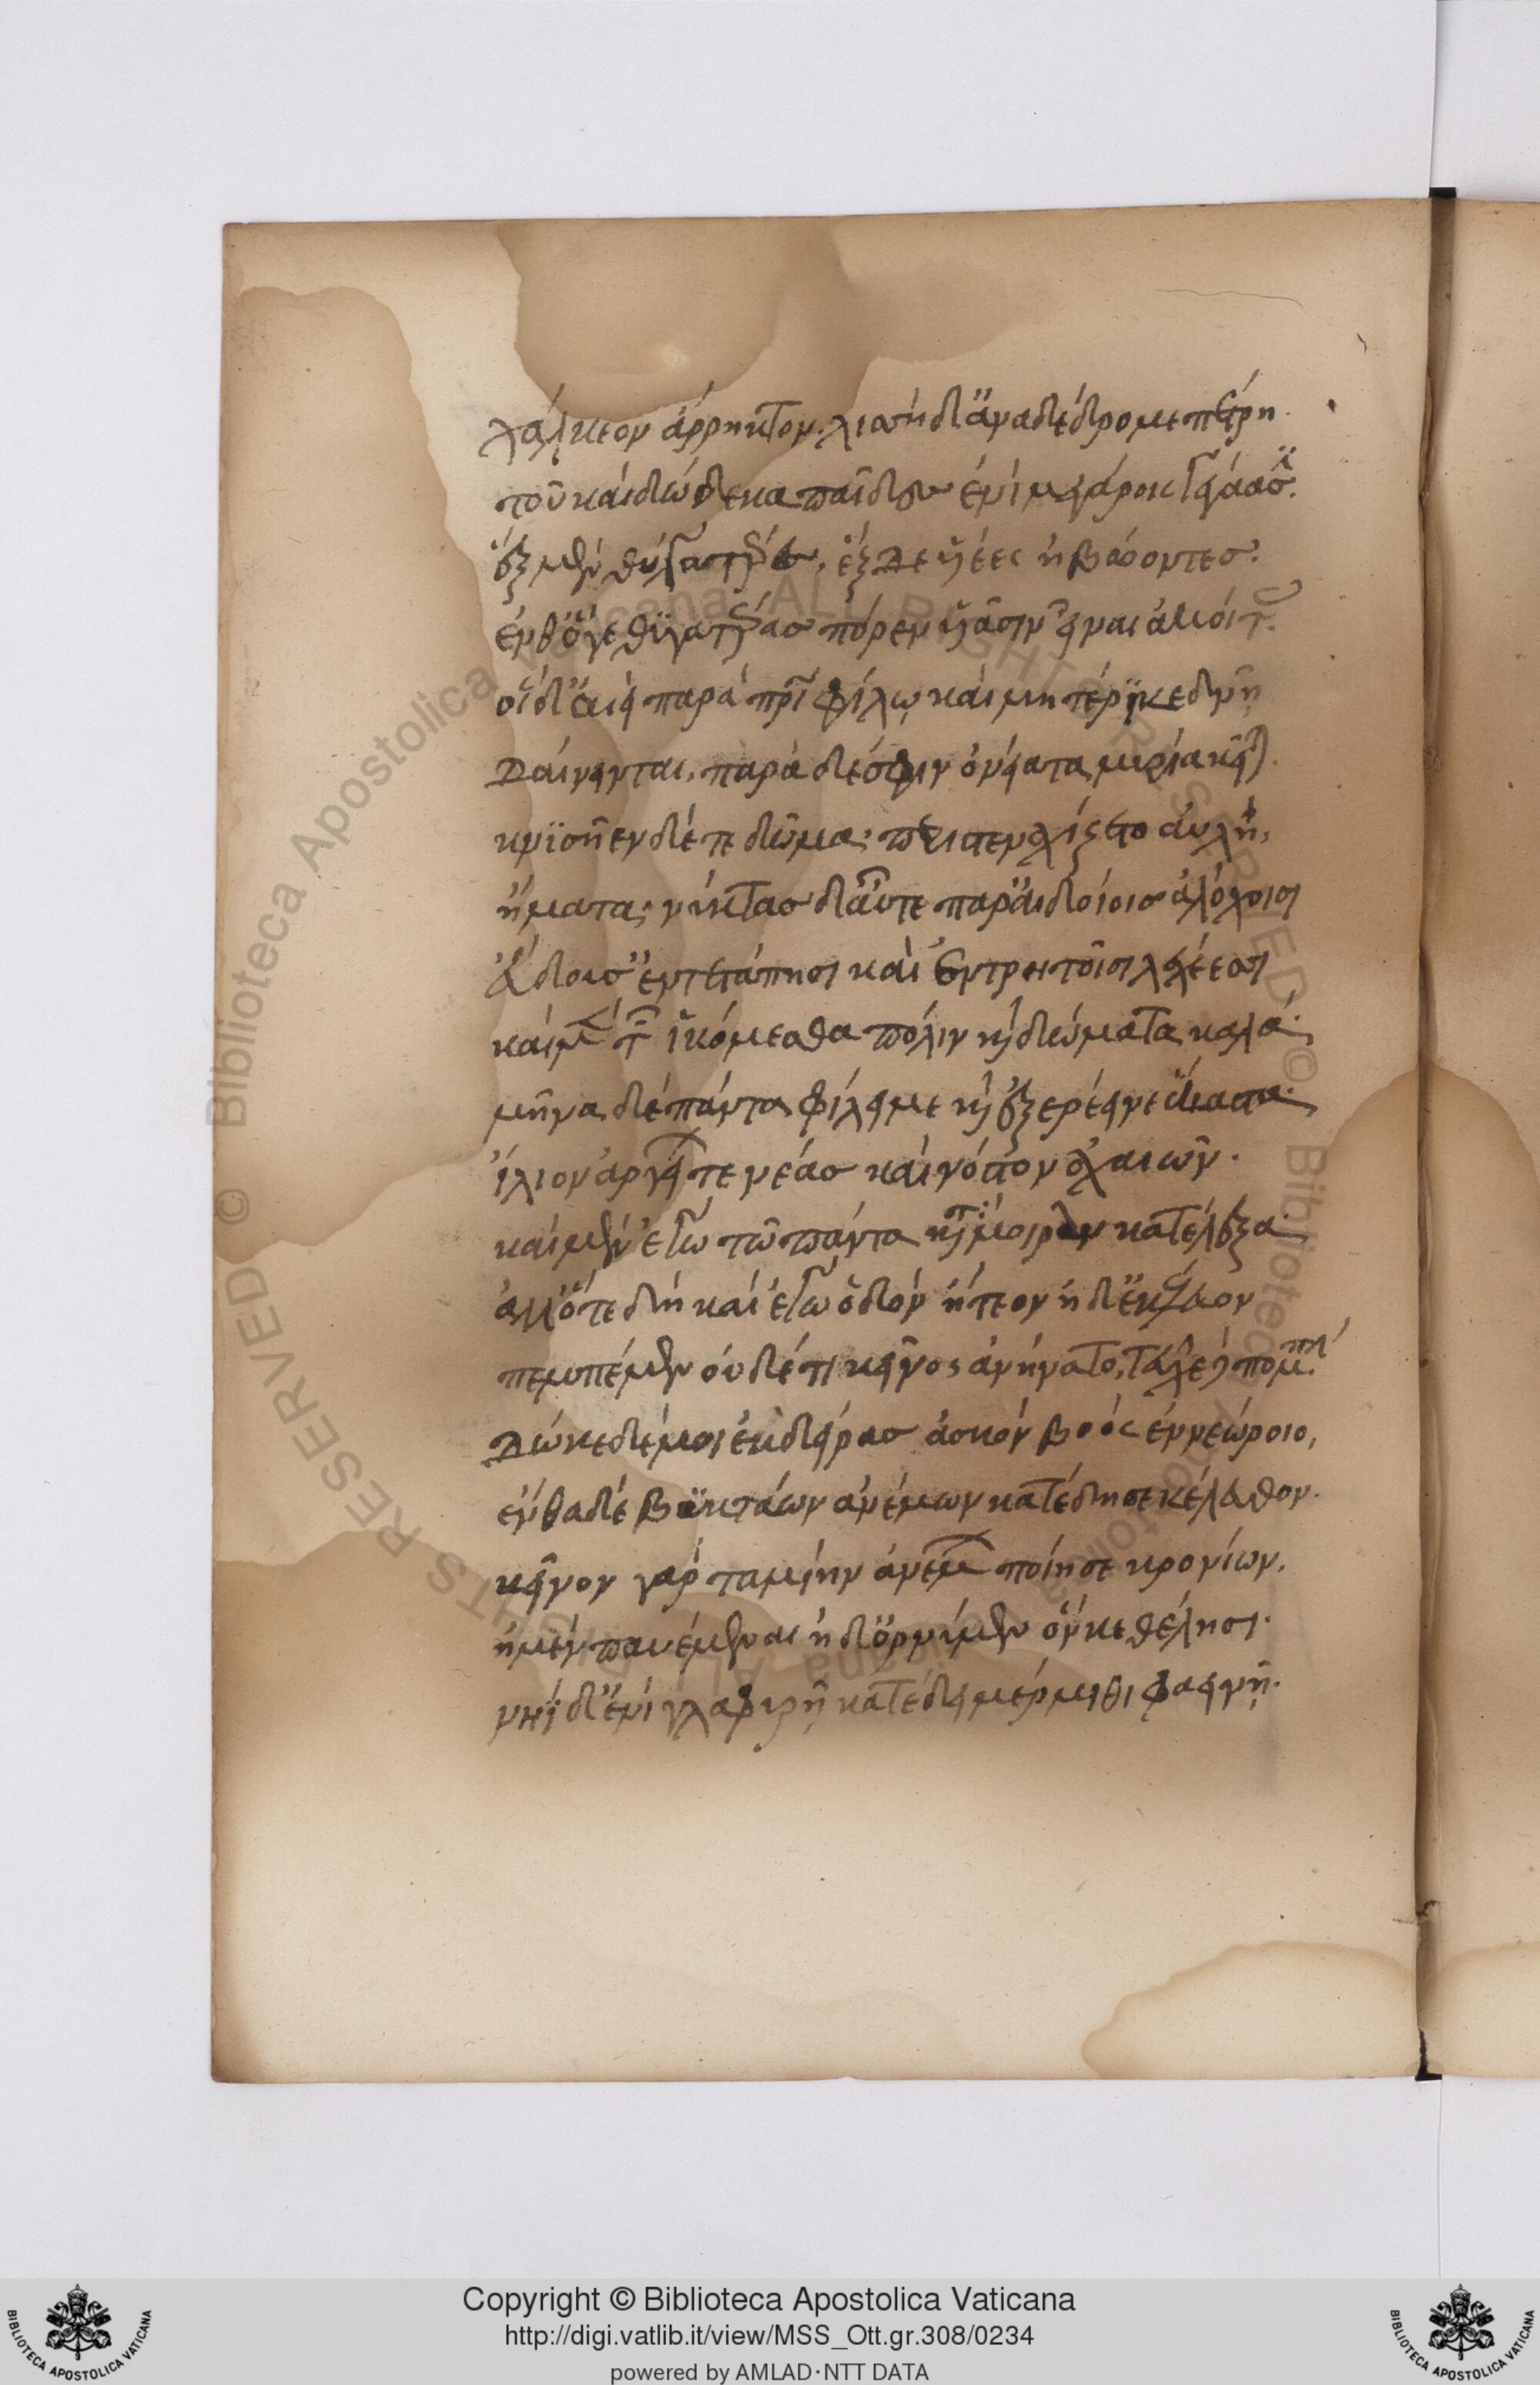 χάλκεον ἄρρηκτον· λισσὴ δ' ἀναδέδρομε πέτρη·
τοῦ καὶ δώδεκα παῖδες ἐνὶ μεγάροις γεγάασιν·
ἓξ μὲν θυγατέρες, ἓξ δε υἱέες ἡβώοντες·
ἔνθ' ὅγε θυγατέρας πόρεν υἱάσιν εἶναι ἀκοίτις·
οἱ δ' αἰεὶ παρὰ πατρὶ φίλω καὶ μητέρι κεδνῇ
δαίνυνται, παρὰ δέ σφιν ὀνείατα μυρία κεῖται·
κνισῆεν δέ τε δῶμα· περιστεναχίζεται αὐλῇ,
ἤματα· νύκτας δ' αὖτε παρ' αἰδοίοις ἀλόχοισι
εὕδουσ' ἔν τε τάπησι καὶ ἐν τρητοῖσι λεχέεσσι
καὶ μὲν τῶν ἱκόμεσθα πόλιν καὶ δώματα καλά·
μῆνα δὲ πάντα φίλει με καὶ ἐξερέεινεν ἅπαντα·
ἴλιον ἀργείων τε νέας καὶ νόστον ἀχαιῶν·
καὶ μὲν ἐγὼ τῶ πάντα κατὰ μοῖραν κατέλεξα·
ἀλλ' ὅτε δὴ καὶ ἐγὼν ὁδὸν ᾔτεον ἠδ' ἐκέλευον
πεμπέμεν οὐδέ τι κεῖνος ἀνήνατο, τεῦχε δὲ πομπήν·
δῶκε δέ μοι ἐκδείρας ἀσκὸν βοὸς ἐννεώροιο,
ἔνθα δὲ βυκτάων ἀνέμων κατέδησε κέλευθον·
κεῖνον γὰρ ταμίην ἀνέμων ποίησε κρονίων,
ἠμὲν παυέμεναι ἠδ' ὀρνύμεν ὅν κε θέλησι·
νηῒ δ' ἐνὶ γλαφυρῇ κατέδει μέρμιθι φαεινῇ·
Copyright © Biblioteca Apostolica Vaticana
http://digi.vatlib.it/view/MSS_Ott.gr.308/0234
powered by AMLAD·NTT DATA